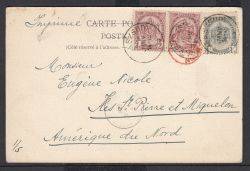 Imprimé
CARTE PO
POSTA
(Côté réservé à l'adresse
Monsieur
Eugène Nicole
Iles St. Pierre et Miquelon
Amérique du Nord